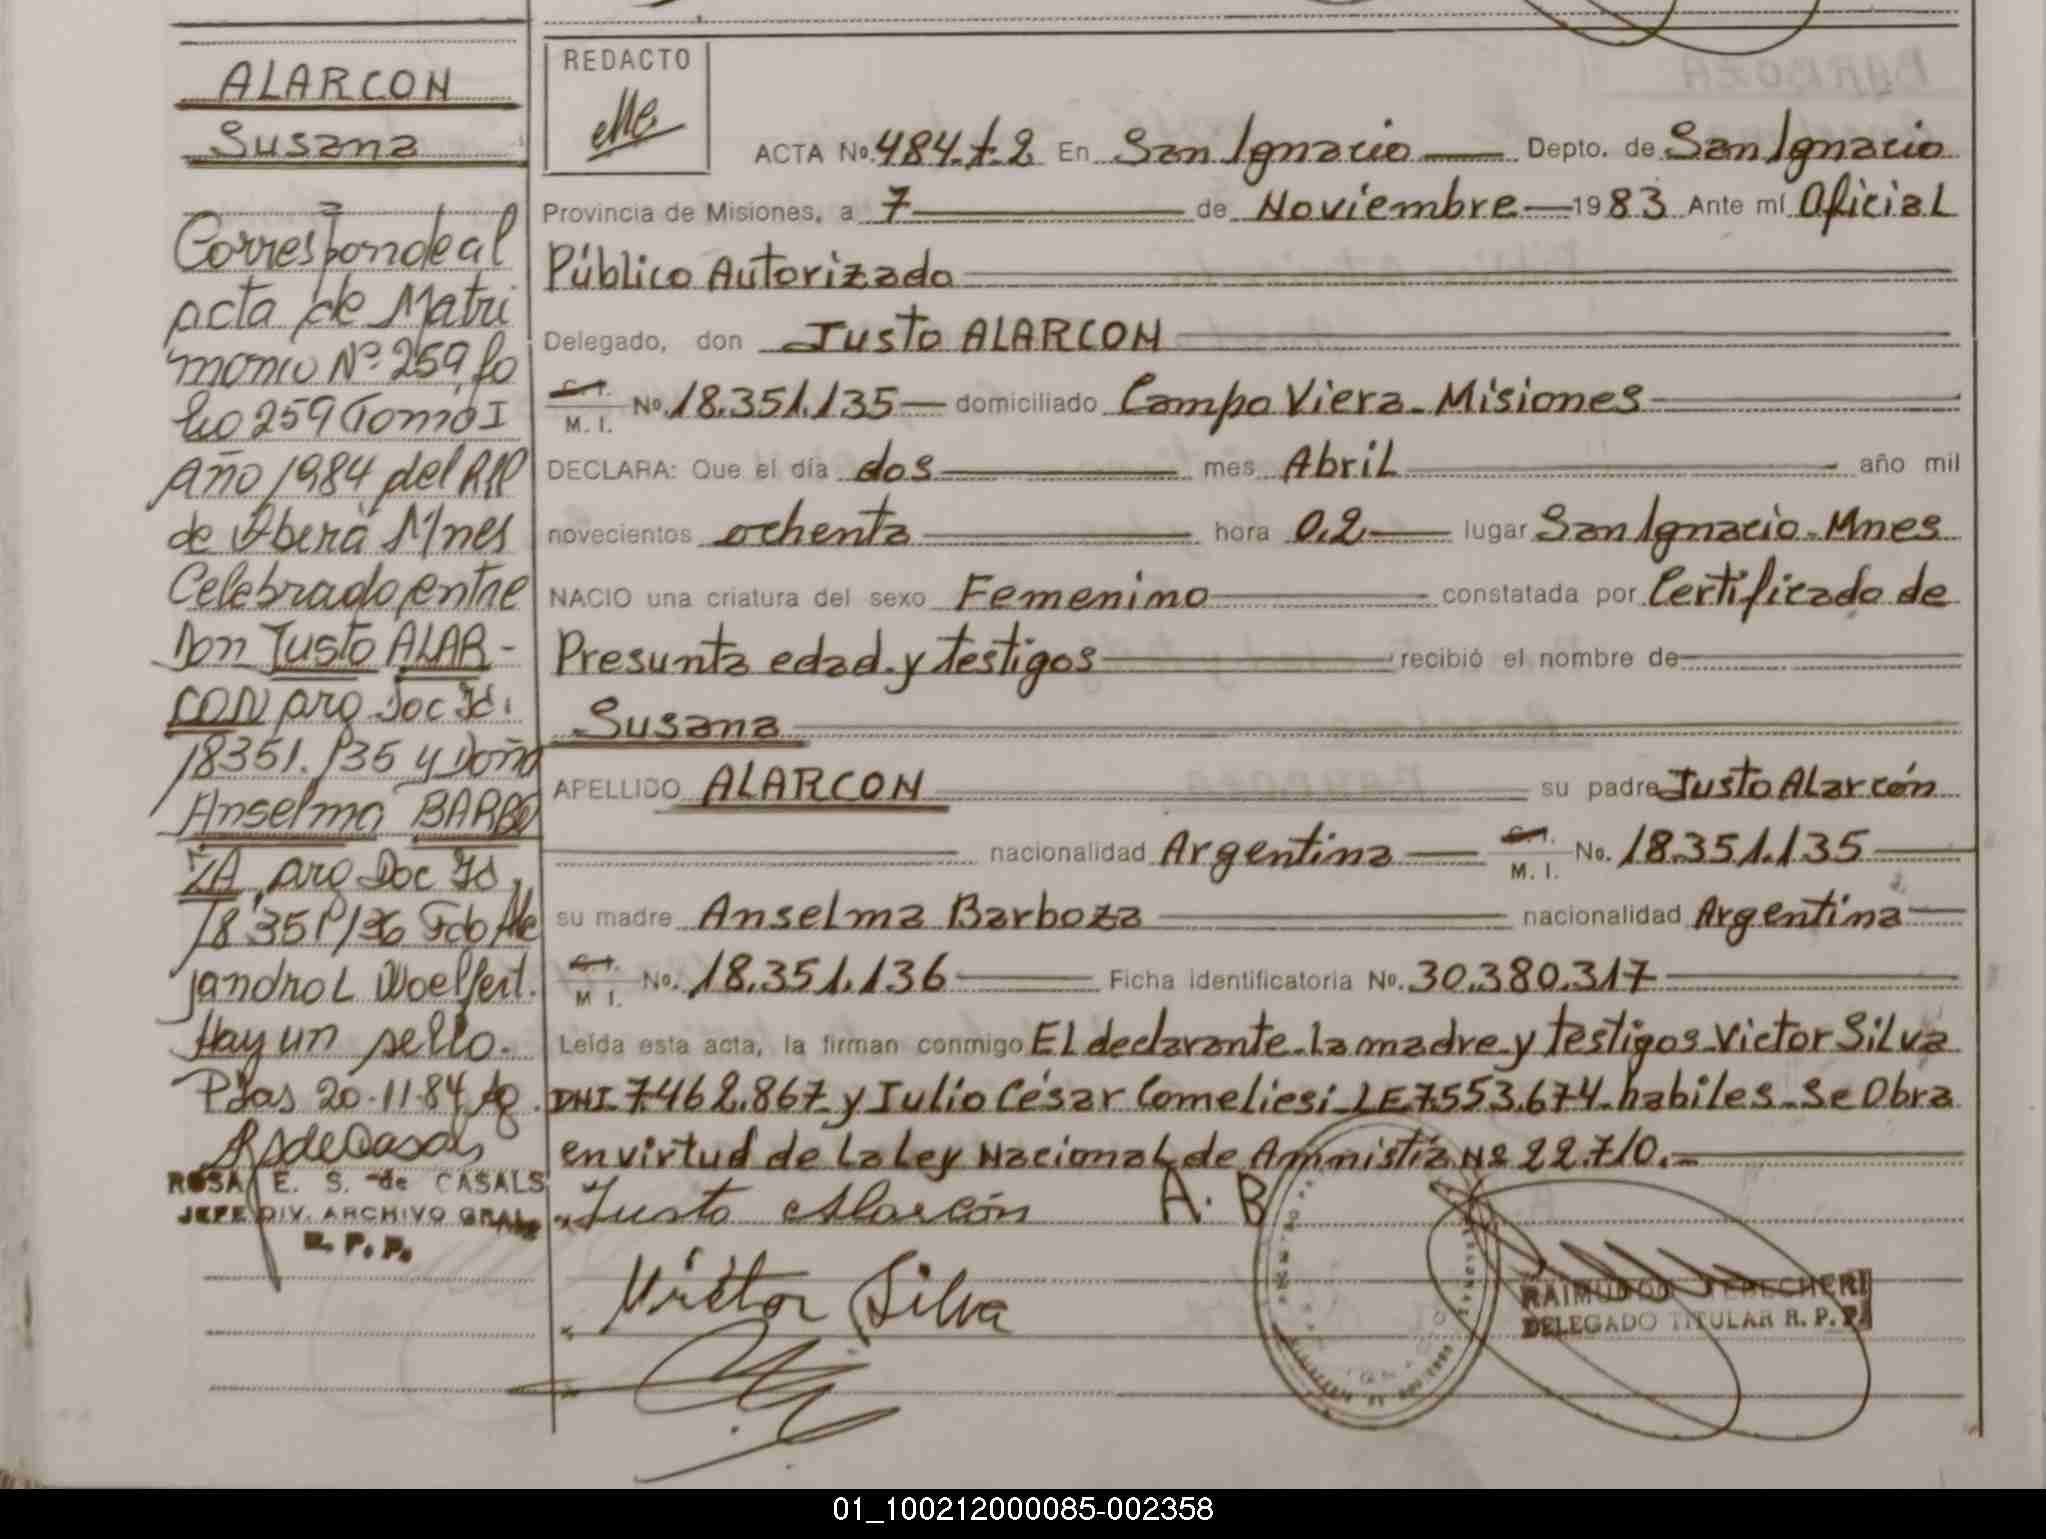 ALARCON
Susana
Corresponde al
acta de Matri
monio Nº 259 fo
lio 259 Tomo I
Año 1984 del RPP
de Oberá Mnes
Celebrado entre
Don Justo ALAR-
CON arg Doc Id.
18351.135 y Doña
Anselma BARBO
ZA, arg Doc Id,
18.351136 Fdo Ale
jandro L Woelfert.
Hay un sello.
Pdas 20.11.84
ROSA E. S. de CASALS
JEFE DIV. ARCHIVO GRAL
R. P. P.
REDACTO
ACTA No. 484.T.2 En San Ignacio Depto. de San Ignacio
Provincia de Misiones, a 7 de Noviembre 1983 Ante mí Oficial
Público Autorizado
Delegado, don Justo ALARCON
C.I. M. I. No. 18.351.135 domiciliado Campo Viera - Misiones
DECLARA: Que el día dos mes Abril año mil
novecientos ochenta hora 0.2 lugar San Ignacio - Mnes
NACIO una criatura del sexo Femenino constatada por Certificado de
Presunta edad y testigos recibió el nombre de
Susana
APELLIDO ALARCON su padre Justo Alarcón
nacionalidad Argentina C.I. M. I. No. 18.351.135
su madre Anselma Barboza nacionalidad Argentina
C.I. M I. No. 18.351.136 Ficha identificatoria No. 30.380.317
Leída esta acta, la firman conmigo El declarante - la madre y testigos Victor Silva
DNI 7462.867 y Julio César Comeliesi LE 7.553.674 - habiles - Se Obra
en virtud de la Ley Nacional de Amnistía Nº 22.710.-
Justo Alarcón A. B
Victor Silva
DELEGADO TITULAR R. P. P.
01_100212000085-002358